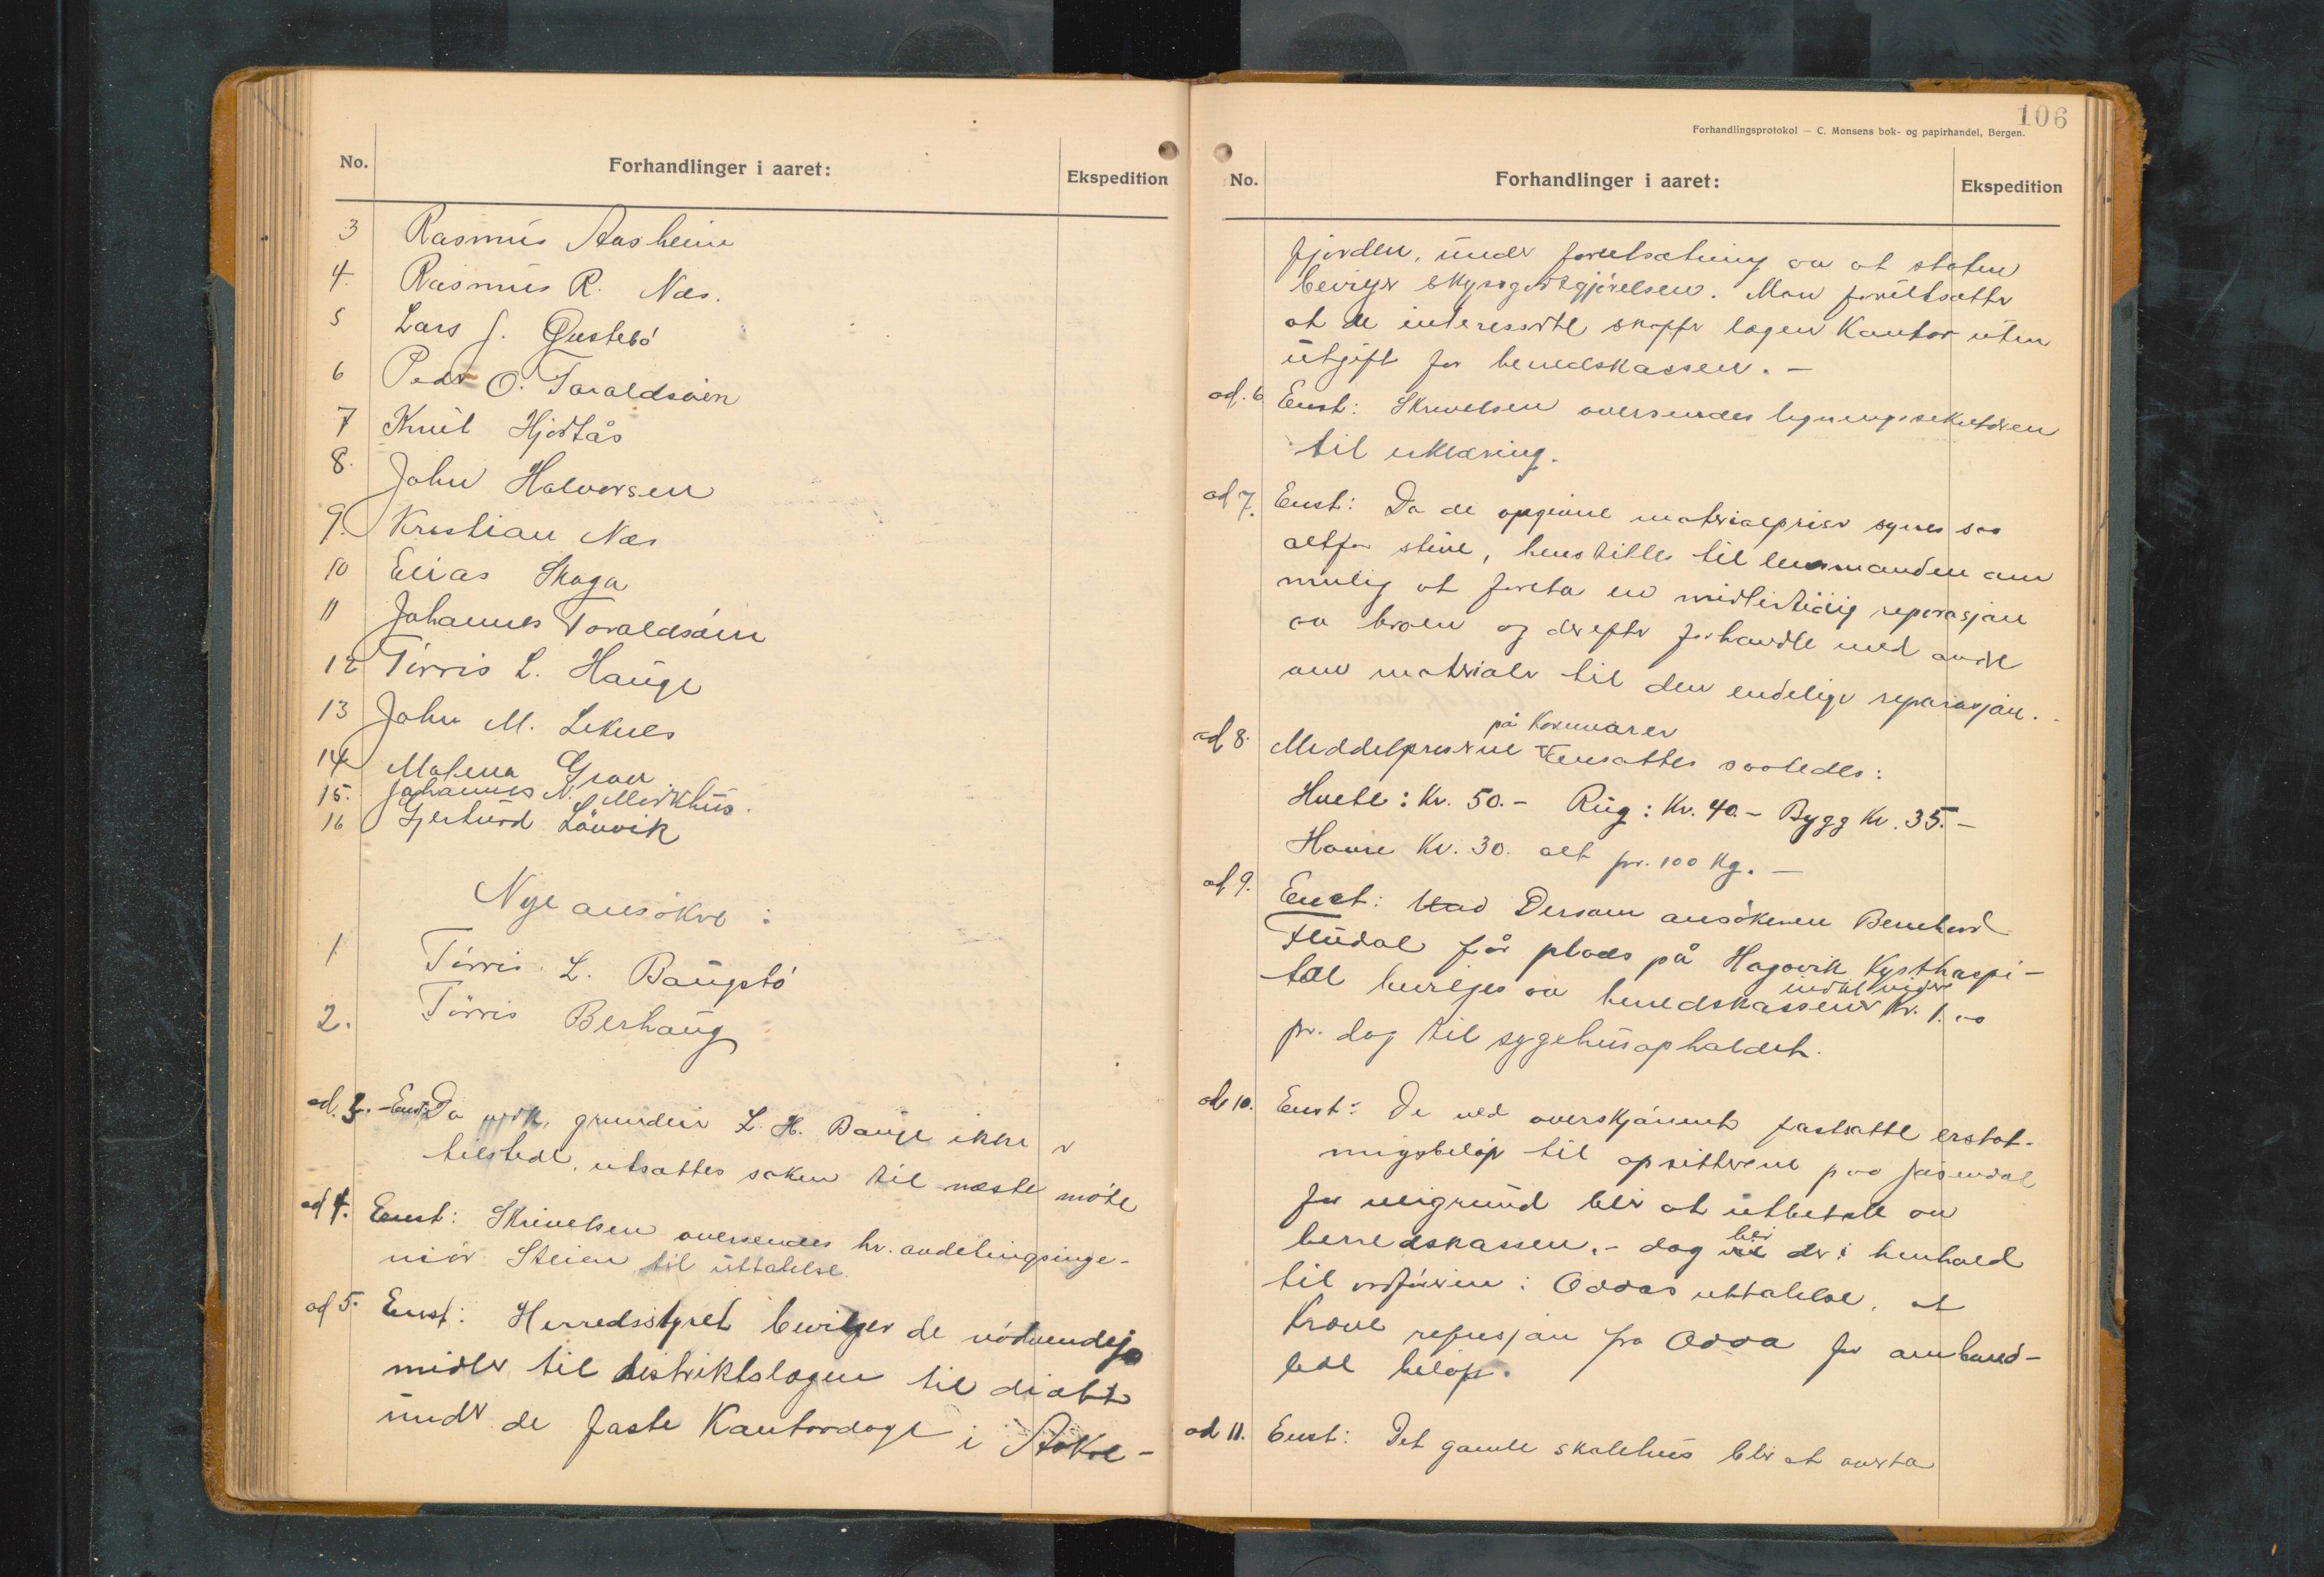 No. Forhandlinger i aaret: Ekspedition
3 Rasmus Aasheim
4. Rasmus R. Næs.
5 Lars J. Østebö
6 Peder O. Taraldsöin
7 Knut Hjortås
8. John Halvorsen
9. Kristian Næs
10 Elias Skaga
11 Johannes Taraldsöin
12 Törris L. Hauge
13 John M. Leknes
14 Malena Grov
15. Johannes N. Mörkhus.
16 Gjerturd Lönvik
Nye ansökere:
1. Törris L. Baugstö
2. Törris Berhaug
ad. 3. Enst: Da grundeier L. H. Bauge ikke er
tilstede, utsattes saken til næste möte
ad 4. Enst: Skrivelsen oversendes hr. avdelingsinge-
niör Steien til uttalelse.
ad 5. Enst: Herredsstyret bevilger de nödvendige
midler til distriktslægen til diæt
under de faste Kontordage i Aakre-
106
Forhandlingsprotokol — C. Monsens bok- og papirhandel, Bergen.
No. Forhandlinger i aaret: Ekspedition
fjorden, under forutsætning av at staten
bevilger skyssgodtgjörelsen. Man forutsætter
at de interesserte skaffer lægen Kontor uten
utgift for herredskassen. —
ad. 6 Enst: Skrivelsen oversendes ligningssekretæren
til erklæring.
ad 7. Enst: Da de opgivne materialpriser synes saa
altfor stive, henstilles til lensmanden om
mulig at foreta en midlertidig reparasjon
av broen og derefter forhandle med andre
om materialer til den endelige reparasjon. -
ad 8. Middelpriserne på Kornvarer ansattes saaledes:
Hvete: Kr. 50.- Rug: Kr. 40.- Bygg Kr. 35.-
Havre Kr. 30. alt pr. 100 Kg. —
ad 9. Enst: Dersom ansökeren Bernhard
Fludal får plads på Hagavik Kysthospi-
tal bevilges av herredskassen indtil videre Kr. 1.00
pr. dag til sygehusopholdet.
ad 10. Enst: De ved overskjönnet fastsatte erstat-
ningsbelöp til opsitterne paa Jösendal
for veigrund blir at utbetale av
herredskassen. - dog blir der i henhold
til ordföreren i Oddas uttalelse, at
kræve refusjon fra Odda for omhand-
lede belöp.
ad 11. Enst: Det gamle skolehus blir at overta